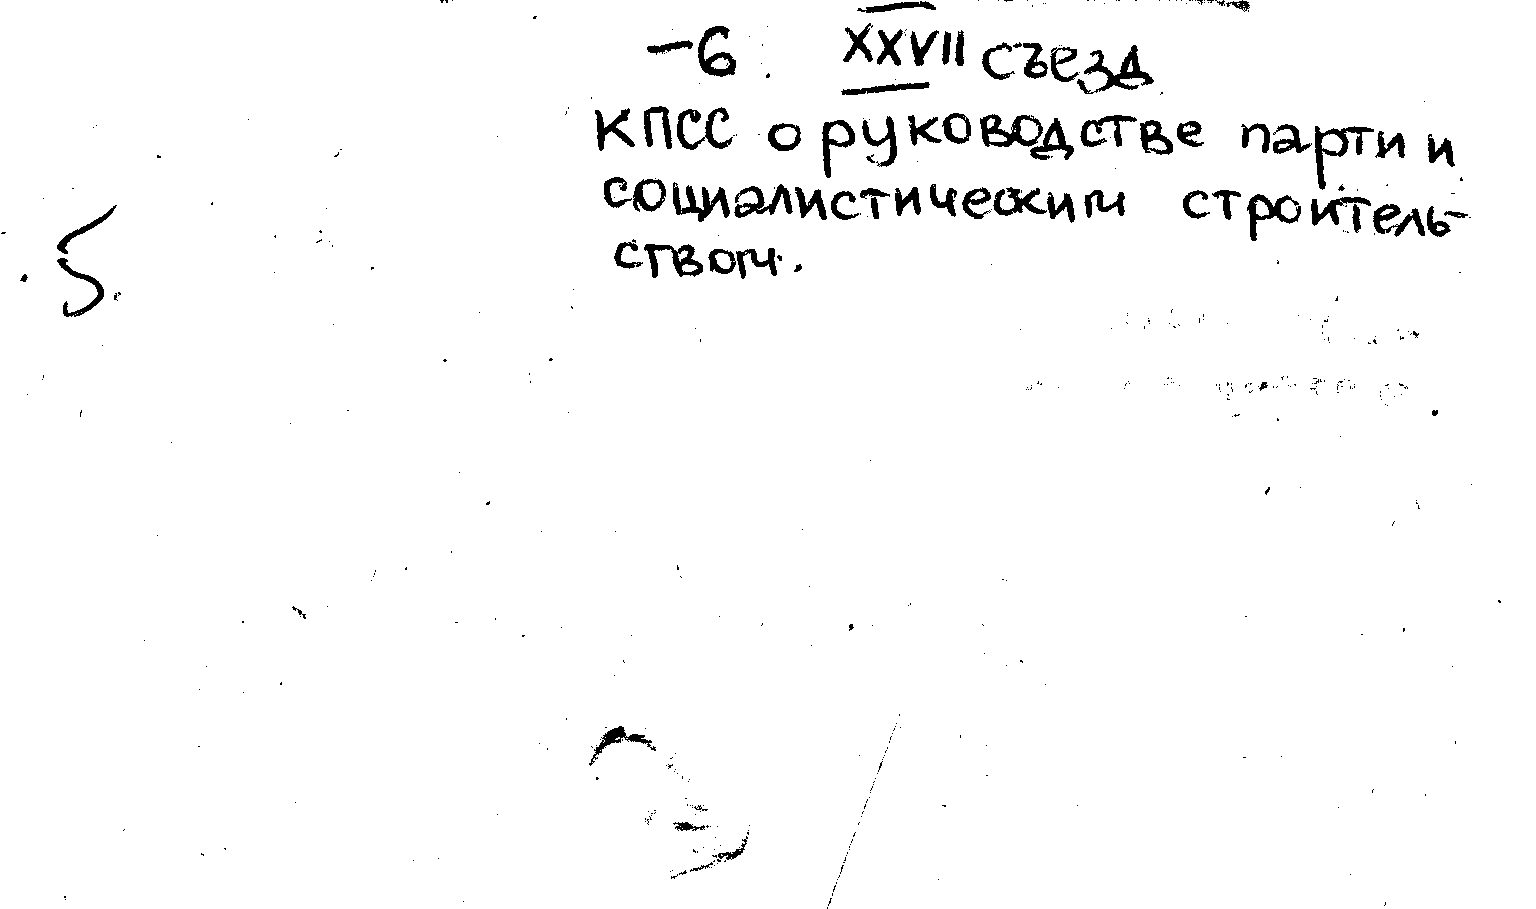 -6 XXVII съезд
КПСС о руководстве парти и
социалистическим строитель-
ством.
5.